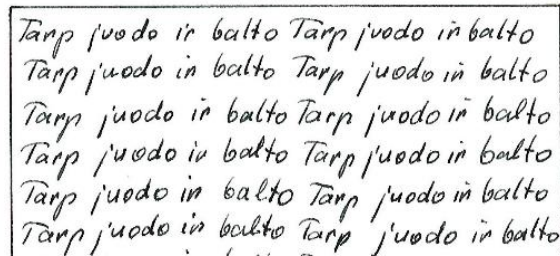 Tarp juodo ir balto Tarp juodo ir balto
Tarp juodo ir balto Tarp juodo ir balto
Tarp juodo ir balto Tarp juodo ir balto
Tarp juodo ir balto Tarp juodo ir balto
Tarp juodo ir balto Tarp juodo ir balto
Tarp juodo ir balto Tarp juodo ir balto